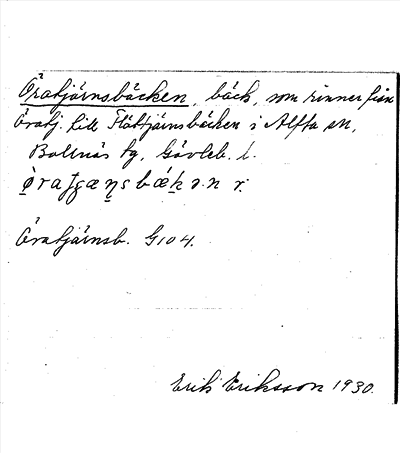 Öratjärnsbäcken, bäck, som rinner från
Öratj. till Flätjärnsbäcken i Alfta sn,
Bollnäs tg, Gävleb. l.
Öratjärnsb. G104.
Erik Eriksson 1930.